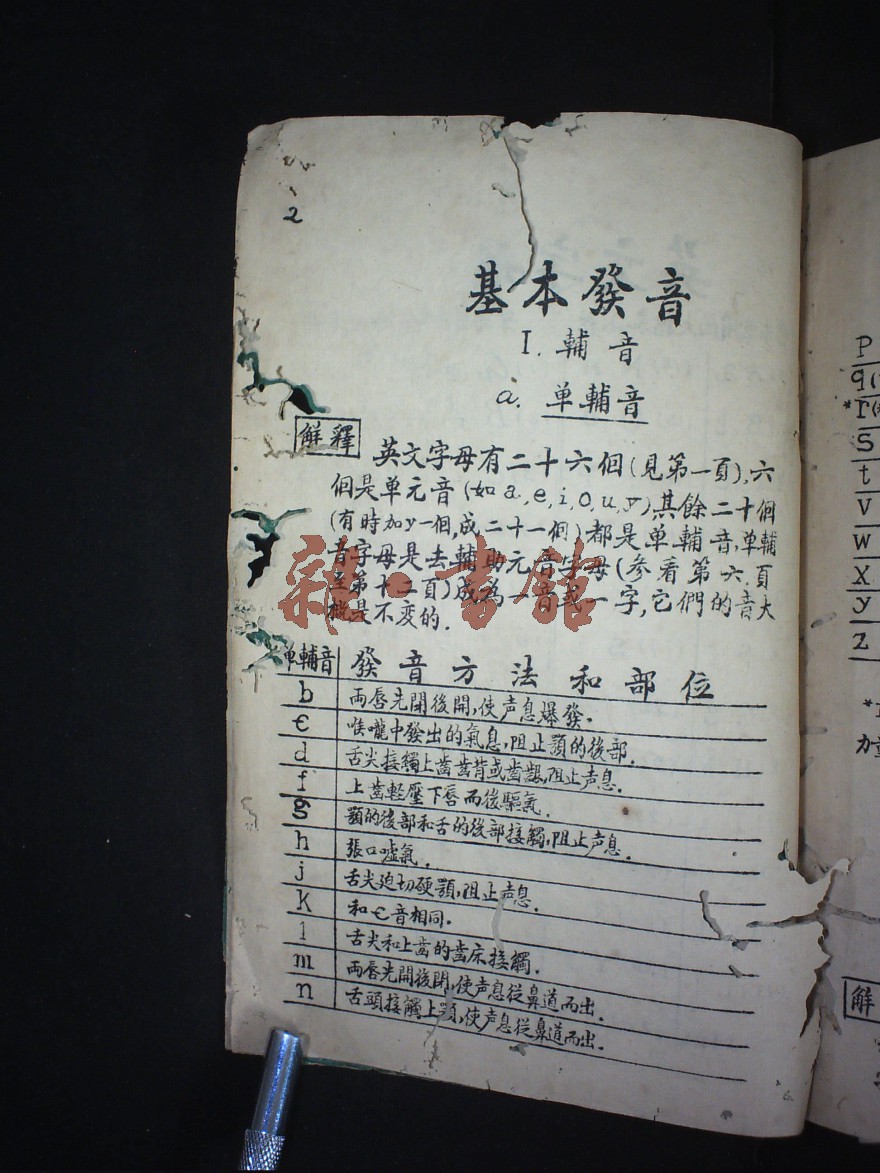 2
基本發音
I. 輔音
a. 单輔音
解釋
英文字母有二十六個(見第一頁),六
個是单元音(如a,e,i,o,u,y),其餘二十個
(有時加y一個,成二十一個)都是单輔音,单輔
音字母是去輔助元音字母(參看第六頁
至第十二頁)成為一音或一字,它們的音大
概是不变的.
雜·書館
单輔音 發音方法和部位
b 両唇先閉後開,使声息爆發.
c 喉嚨中發出的氣息,阻止顎的後部.
d 舌尖接觸上齒齒背或齒齦,阻止声息.
f 上齒軽壓下唇而後驅氣.
g 顎的後部和舌的後部接觸,阻止声息.
h 張口噓氣.
j 舌尖迫切硬顎,阻止声息.
k 和c音相同.
l 舌尖和上齒的齒床接觸.
m 両唇先開後閉,使声息從鼻道而出.
n 舌頭接觸上顎,使声息從鼻道而出.
P
q(
*r(
S
t
V
W
X
y
Z
力
解